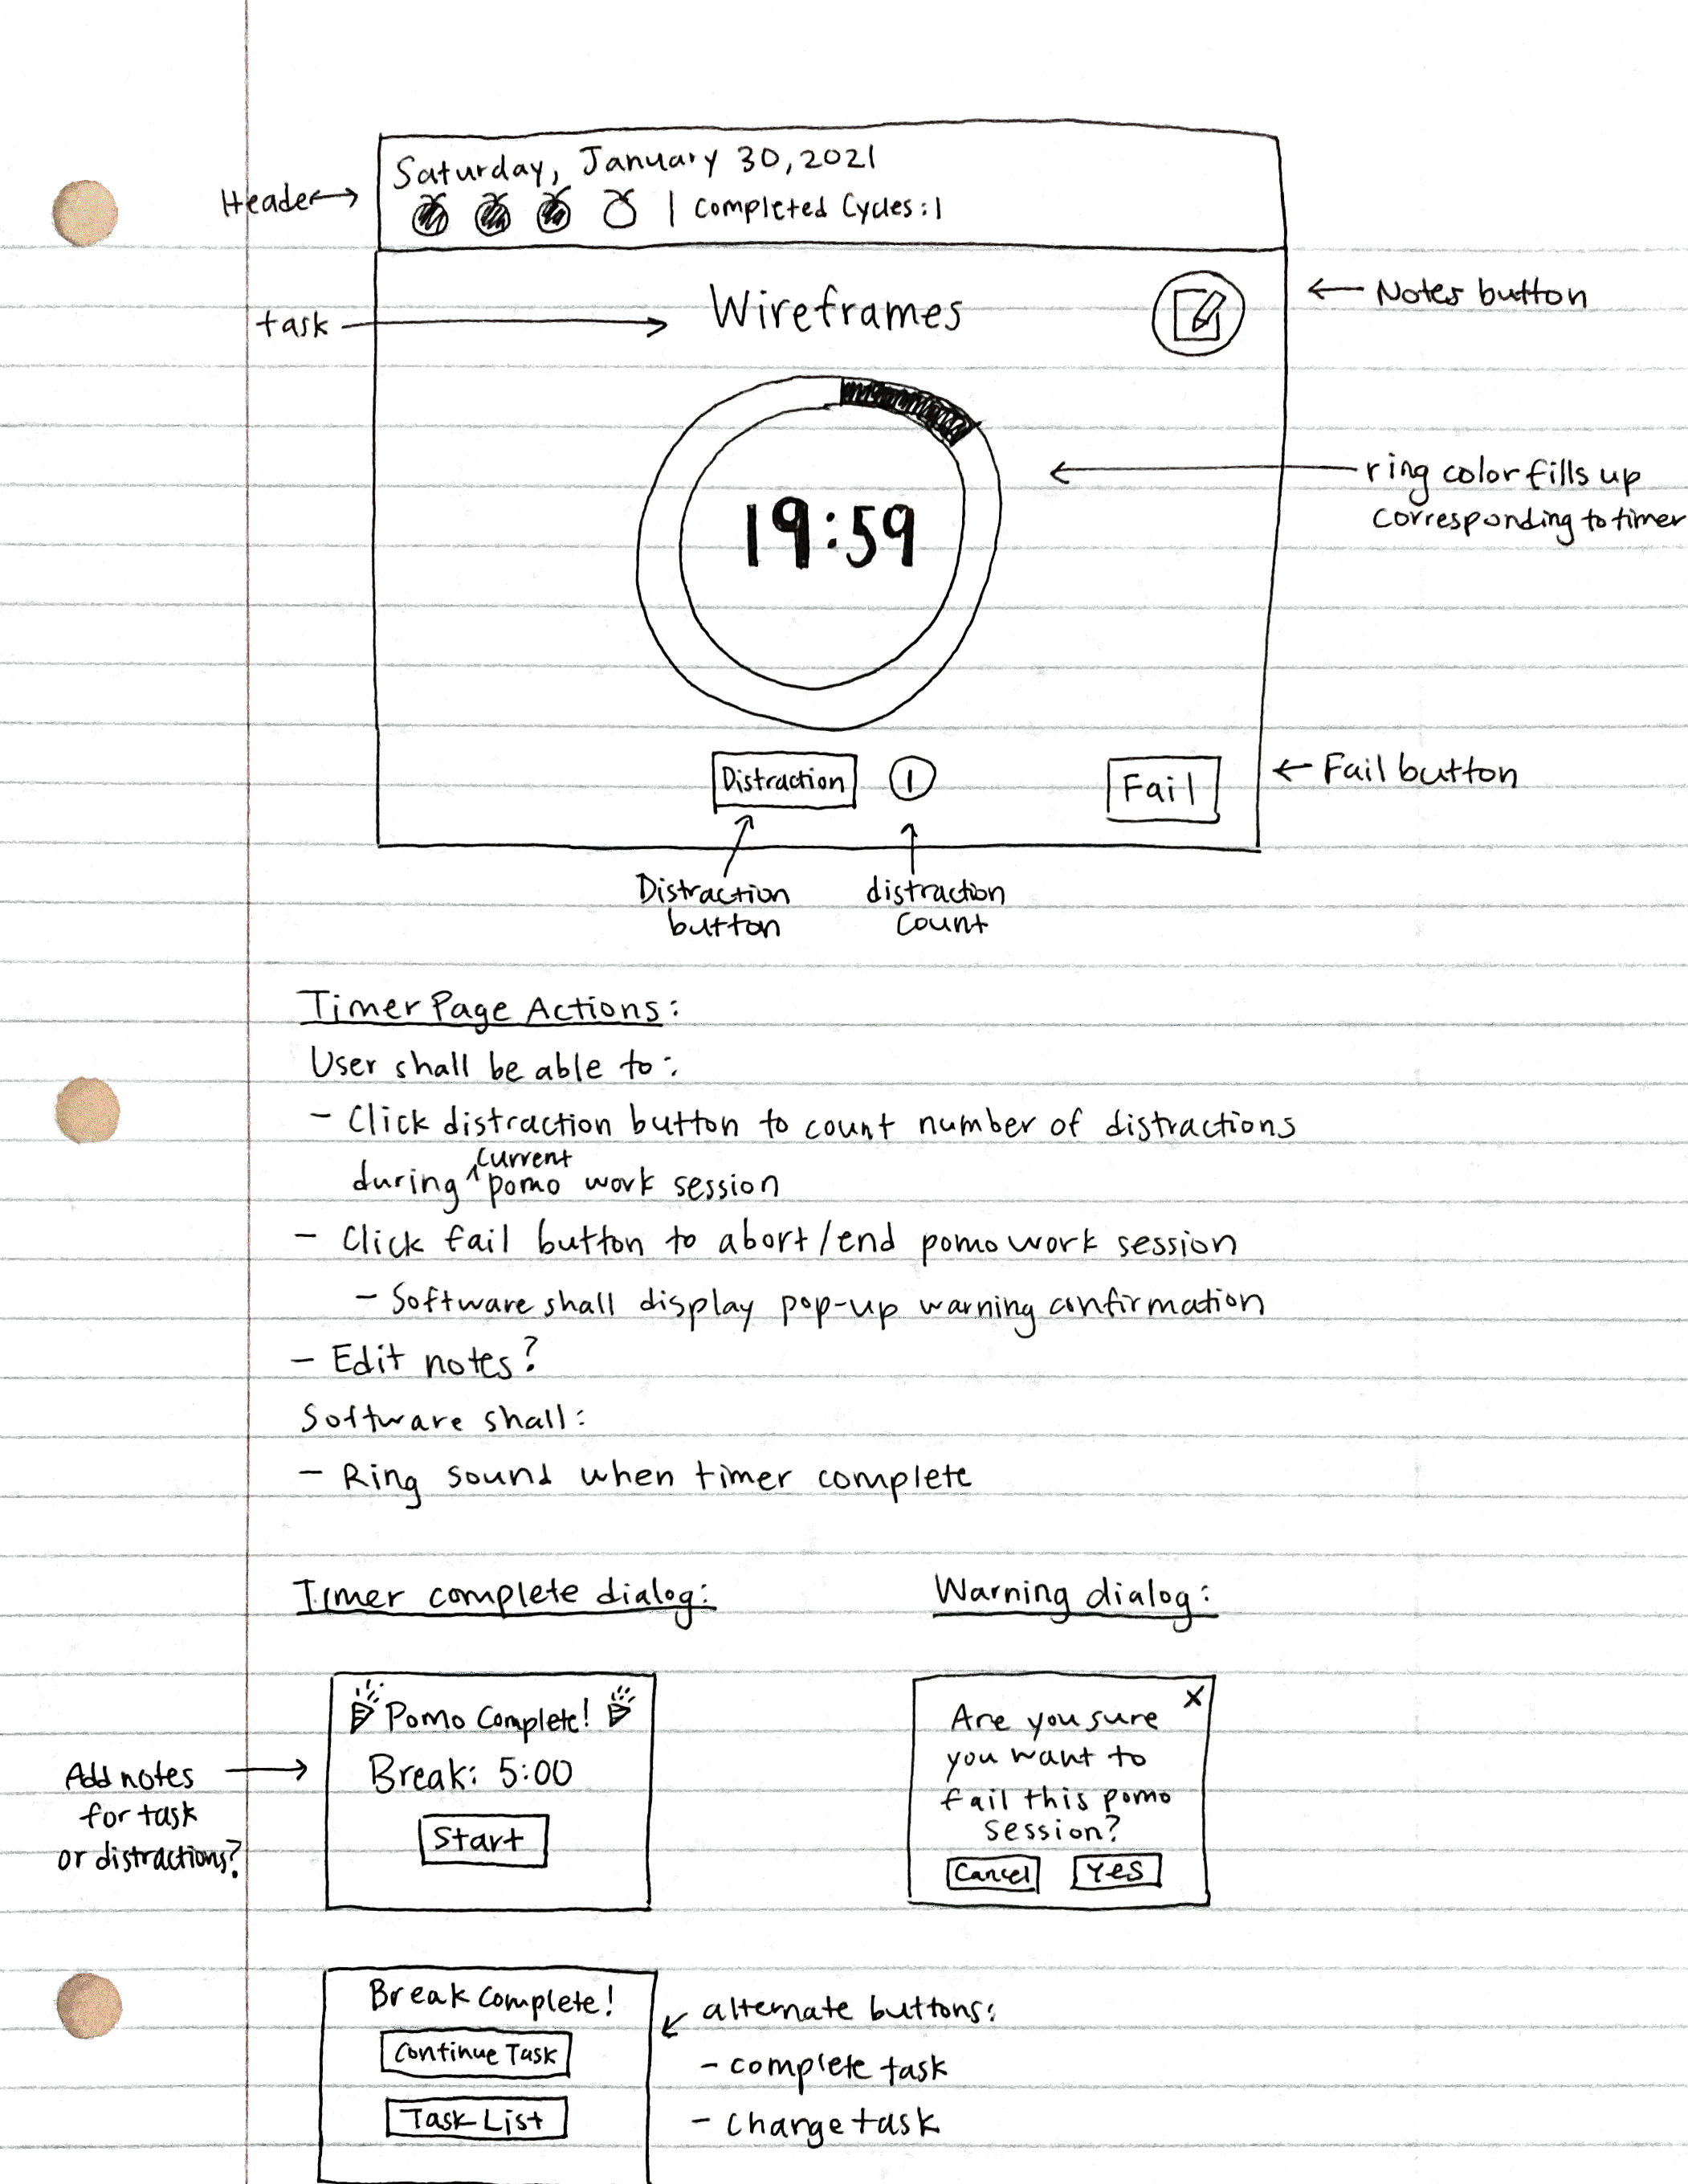 Saturday, January 30, 2021
Header
| Completed Cycles: 1
Wireframes
Notes button
task
ring color fills up
corresponding to timer
19:59
Distraction
1
Fail
Fail button
Distraction
button
distraction
count
Timer Page Actions:
User shall be able to:
- Click distraction button to count number of distractions
current
during ^ pomo work session
- Click fail button to abort/end pomo work session
- Software shall display pop-up warning confirmation
- Edit notes?
Software shall:
- Ring sound when timer complete
Timer complete dialog:
Pomo Complete!
Break: 5:00
Start
Add notes
for task
or distractions?
Warning dialog:
X
Are you sure
you want to
fail this pomo
session?
Cancel
Yes
Break Complete!
Continue Task
Task List
alternate buttons:
- complete task
- change task